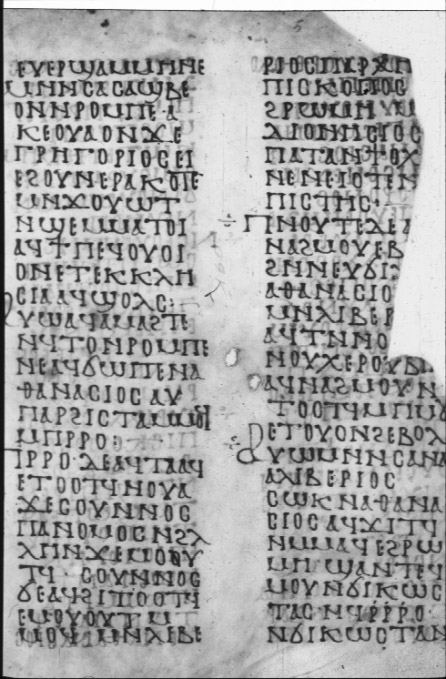 ⲉⲩⲉⲣϣⲁⲙⲙⲏⲛⲉ
ⲙⲛⲛⲥⲁⲥⲁϣⲃⲉ
ⲟⲛⲛⲣⲟⲙⲡⲉ·ⲁ
ⲕⲉⲟⲩⲁⲟⲛϫⲉ
ⲅⲣⲏⲅⲟⲣⲓⲟⲥⲉⲓ
ⲉϩⲟⲩⲛⲉⲣⲁⲕⲟⲧⲉ
ⲙⲛϫⲟⲩⲱⲧ
ⲛϣⲉⲙⲙⲁⲧⲟⲓ
ⲁϥϯⲡⲉϥⲟⲩⲟⲓ
ⲟⲛⲉⲧⲉⲕⲕⲗⲏ
ⲥⲓⲁⲁϥϣⲟⲗⲥ:
ⲩϣⲁϥⲁⲙⲁϩⲧⲉ
ⲛϥⲧⲟⲛⲣⲟⲙⲡⲉ
ⲛⲉⲁϥϭⲱⲡⲉⲛⲁ
ⲑⲁⲛⲁⲥⲓⲟⲥⲁⲩ
ⲡⲁⲣϩⲓⲥⲧⲁⲙⲙⲟϥ
ⲙⲡⲣⲣⲟ:
ⲡⲣⲣⲟ·ⲇⲉⲁϥⲧⲁⲁϥ
ⲉⲧⲟⲟⲧϥⲛⲟⲩⲁ
ϫⲉⲥⲟⲩⲛⲛⲟⲥ
ⲡⲁⲛⲟⲙⲟⲥⲛϩⲗ
ⲗⲏⲛϫⲉⲉⲓⲟⲟⲩ
ⲧϥ·ⲥⲟⲩⲛⲛⲟⲥ
ⲇⲉⲁϥϩⲓⲧⲟⲟⲧϥ
ⲉⲙⲟⲩⲟⲩⲧⲙ
ⲙⲟϥⲙⲛⲗⲓⲃⲉ
ⲣⲓⲟⲥⲡⲁⲣⲭⲏ
ⲡⲓⲥⲕⲟⲡⲟⲥ
ϩⲣⲱⲙⲏⲙⲛ
ⲇⲓⲟⲛⲏⲥⲓⲟⲥ
ⲡⲁⲧⲁⲛⲧⲟⲭ
ⲛⲉⲛⲉⲓⲟⲧⲉⲛ
ⲡⲓⲥⲧⲓⲥ·
ⲡⲛⲟⲩⲧⲉⲇⲉⲁ
ⲛⲁϩⲙⲟⲩⲉⲃ
ϩⲛⲛⲉⲩϭⲓ
ⲁⲑⲁⲛⲁⲥⲓⲟ
ⲙⲛⲗⲓⲃⲉⲣ
ⲁϥⲧⲛⲛⲟ
ⲛⲟⲩⲭⲉⲣⲟⲩⲃⲓ
ⲁϥⲛⲁϩⲙⲟⲩⲛ
ⲧⲟⲟⲧϥⲙⲡⲙ
ⲉⲧⲟⲩⲟⲛϩⲉⲃⲟⲗ
ⲩⲱⲙⲛⲛⲥⲁⲛⲁ
ⲁⲗⲓⲃⲉⲣⲓⲟⲥ
ⲥⲱⲕⲛⲁⲑⲁⲛⲁ
ⲥⲓⲟⲥⲁϥϫⲓⲧϥ
ⲛⲙⲙⲁϥⲉϩⲣⲱ
ⲙⲏϣⲁⲛⲧⲉϥ
ⲙⲟⲩⲛϭⲓⲕⲱⲥ
ⲧⲁⲥⲛϥⲣⲣⲣⲟ·
ⲛϭⲓⲕⲱⲥⲧⲁⲛ